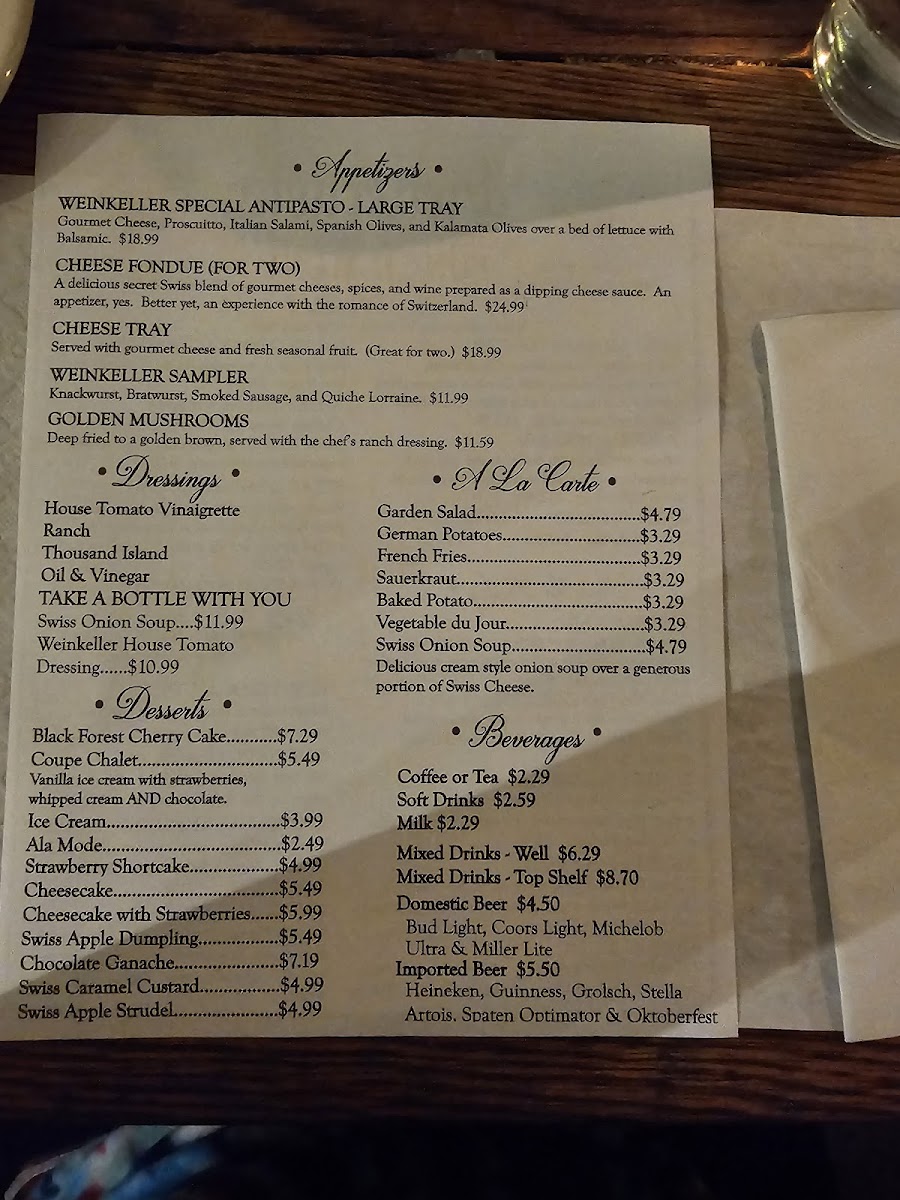 • Appetizers •
WEINKELLER SPECIAL ANTIPASTO - LARGE TRAY
Gourmet Cheese, Proscuitto, Italian Salami, Spanish Olives, and Kalamata Olives over a bed of lettuce with
Balsamic. $18.99
CHEESE FONDUE (FOR TWO)
A delicious secret Swiss blend of gourmet cheeses, spices, and wine prepared as a dipping cheese sauce. An
appetizer, yes. Better yet, an experience with the romance of Switzerland. $24.99
CHEESE TRAY
Served with gourmet cheese and fresh seasonal fruit. (Great for two.) $18.99
WEINKELLER SAMPLER
Knackwurst, Bratwurst, Smoked Sausage, and Quiche Lorraine. $11.99
GOLDEN MUSHROOMS
Deep fried to a golden brown, served with the chef's ranch dressing. $11.59
• Dressings •
House Tomato Vinaigrette
Ranch
Thousand Island
Oil & Vinegar
TAKE A BOTTLE WITH YOU
Swiss Onion Soup....$11.99
Weinkeller House Tomato
Dressing......$10.99
• Desserts •
Black Forest Cherry Cake...........$7.29
Coupe Chalet...............................$5.49
Vanilla ice cream with strawberries,
whipped cream AND chocolate.
Ice Cream......................................$3.99
Ala Mode.......................................$2.49
Strawberry Shortcake...................$4.99
Cheesecake....................................$5.49
Cheesecake with Strawberries......$5.99
Swiss Apple Dumpling.................$5.49
Chocolate Ganache.......................$7.19
Swiss Caramel Custard.................$4.99
Swiss Apple Strudel......................$4.99
• A La Carte •
Garden Salad....................................$4.79
German Potatoes..............................$3.29
French Fries......................................$3.29
Sauerkraut.........................................$3.29
Baked Potato.....................................$3.29
Vegetable du Jour..............................$3.29
Swiss Onion Soup.............................$4.79
Delicious cream style onion soup over a generous
portion of Swiss Cheese.
• Beverages •
Coffee or Tea $2.29
Soft Drinks $2.59
Milk $2.29
Mixed Drinks - Well $6.29
Mixed Drinks - Top Shelf $8.70
Domestic Beer $4.50
Bud Light, Coors Light, Michelob
Ultra & Miller Lite
Imported Beer $5.50
Heineken, Guinness, Grolsch, Stella
Artois, Spaten Optimator & Oktoberfest